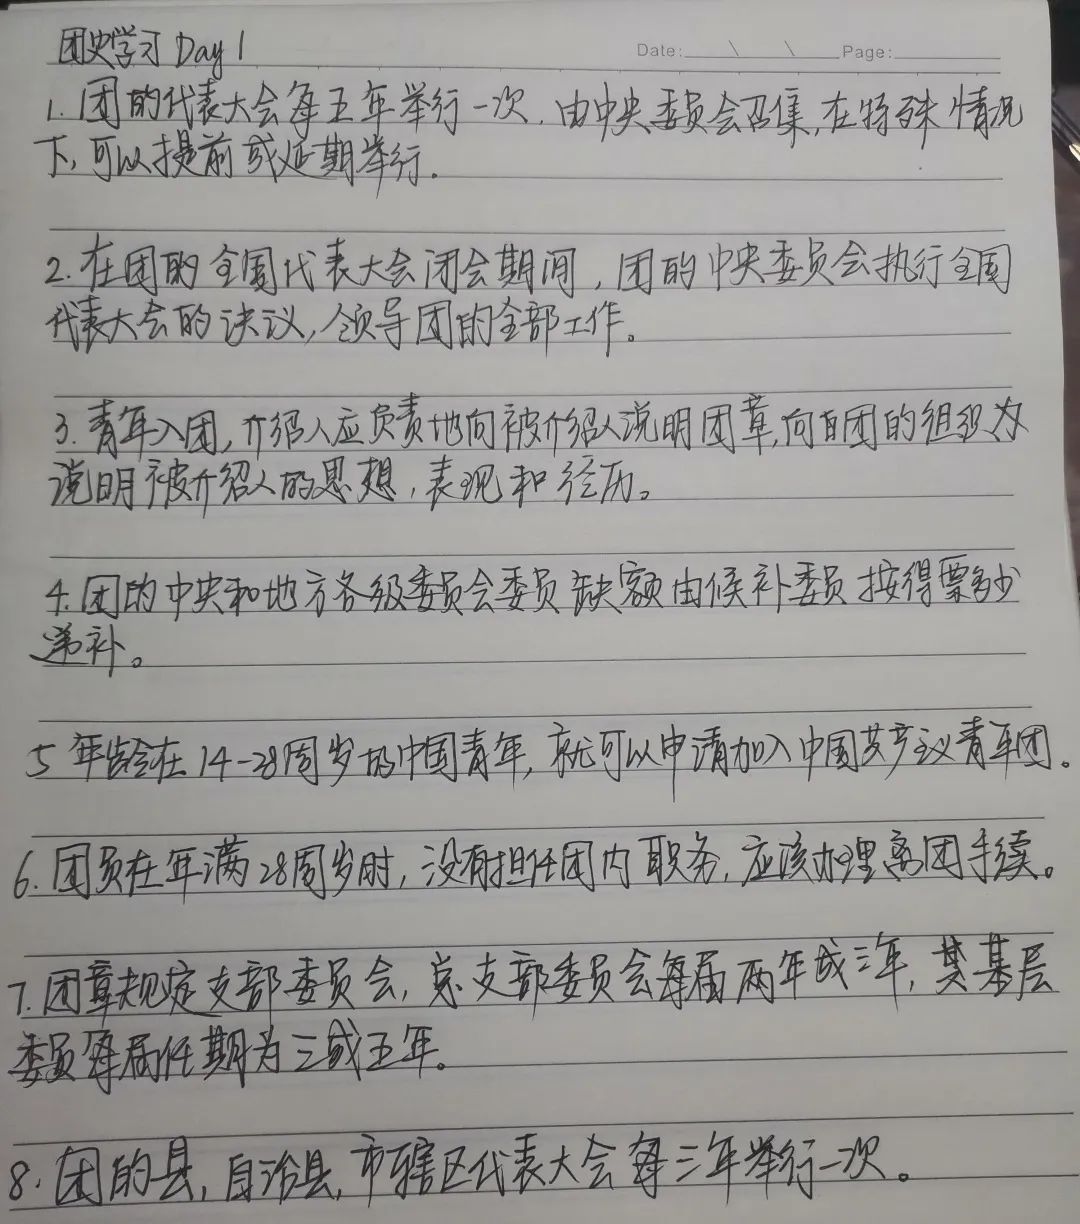 团史学习 Day 1
Date: \ \ Page:
1. 团的代表大会每五年举行一次，由中央委员会召集，在特殊情况
下，可以提前或延期举行.
2. 在团的全国代表大会闭会期间，团的中央委员会执行全国
代表大会的决议，领导团的全部工作。
3. 青年入团，介绍人应负责地向被介绍人说明团章，向自团的组织为
说明被介绍人的思想，表现和经历。
4. 团的中央和地方各级委员会委员缺额由候补委员按得票多少
递补。
5 年龄在14-28周岁的中国青年，就可以申请加入中国共产议青年团。
6. 团员在年满28周岁时，没有担任团内职务，应该办理离团手续。
7. 团章规定支部委员会，总支部委员会每届两年或三年，其基层
委员每届任期为三或五年。
8. 团的县，自治县，市辖区代表大会每三年举行一次。